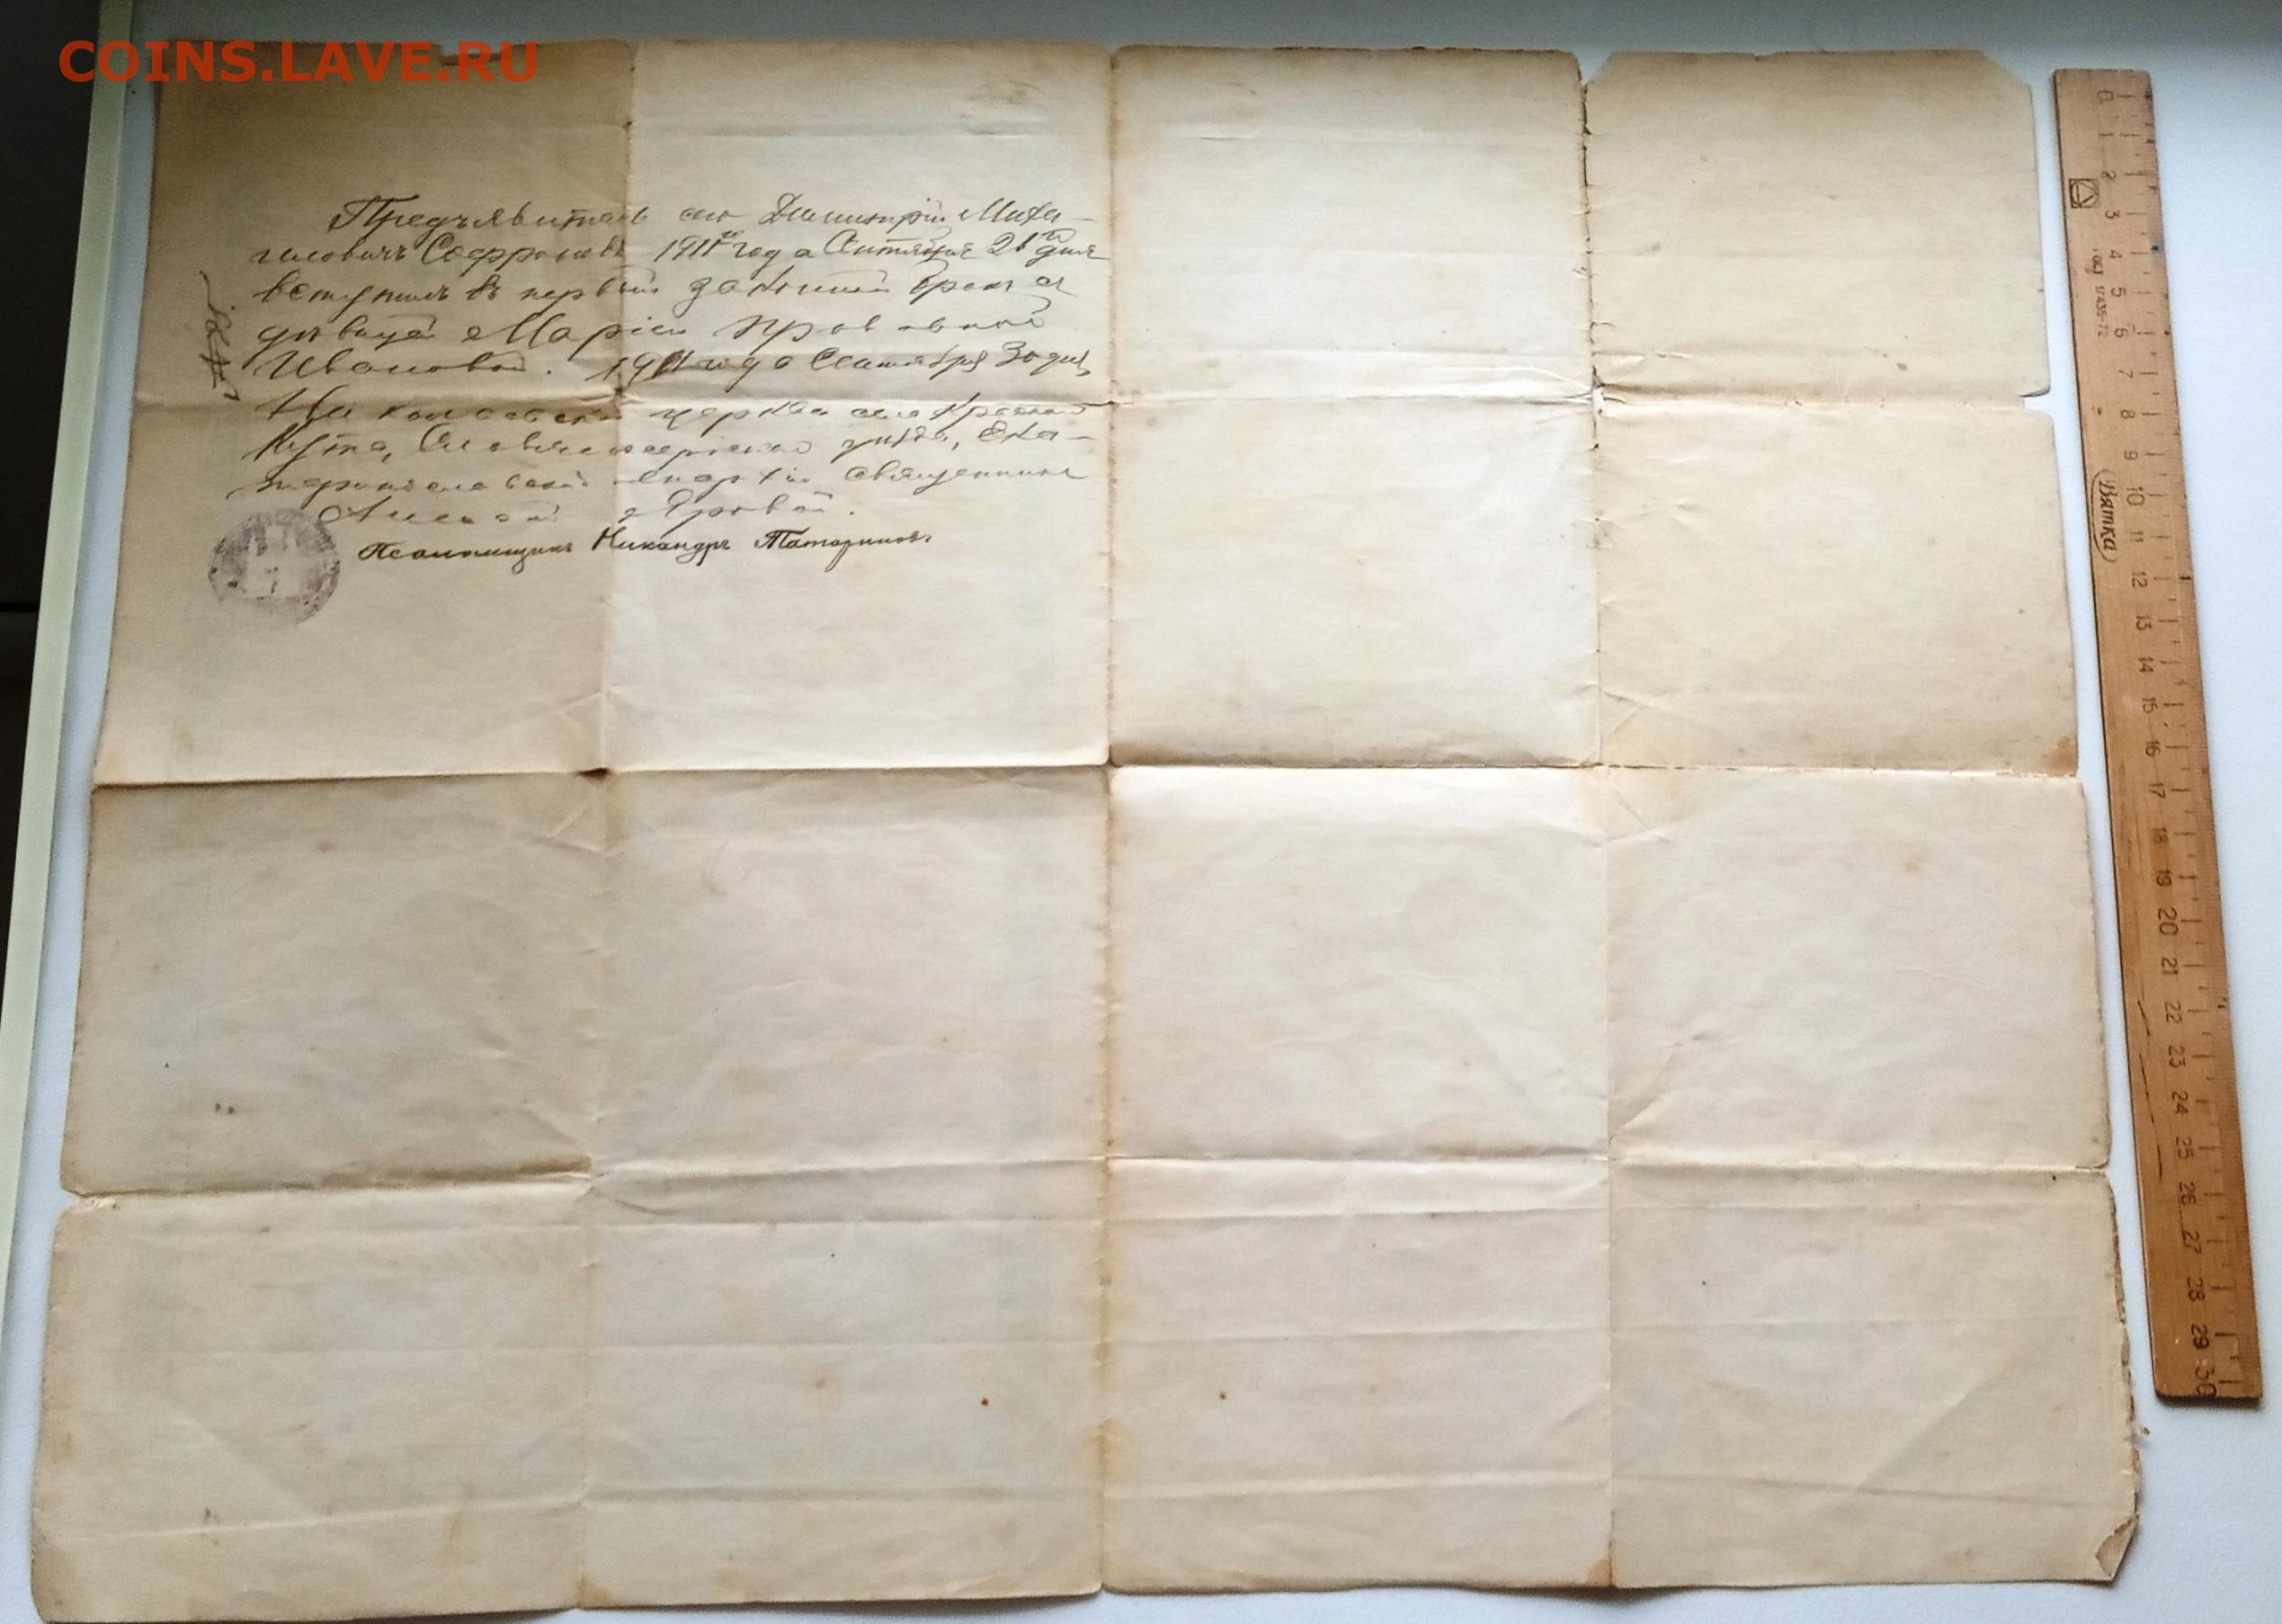 COINS.LAVE.RU
Предъявитель сего Димитрій Миха-
иловичъ Софроновъ 1911го года Сентября 21го дня
вступилъ въ первый законный бракъ съ
дѣвицей Маріей
Ивановой. 1911 года Сентября 30 дня,
Николаевской церкви села Краснаго
Кута, Славяносербскаго уѣзда, Ека-
теринославской епархіи Священникъ
Яровой.
Псаломщикъ Никандръ Татариновъ
0 1 2 3 4 5 6 7 8 9 10 11 12 13 14 15 16 17 18 19 20 21 22 23 24 25 26 27 28 29 30
ГОСТ 17435-72
Вятка